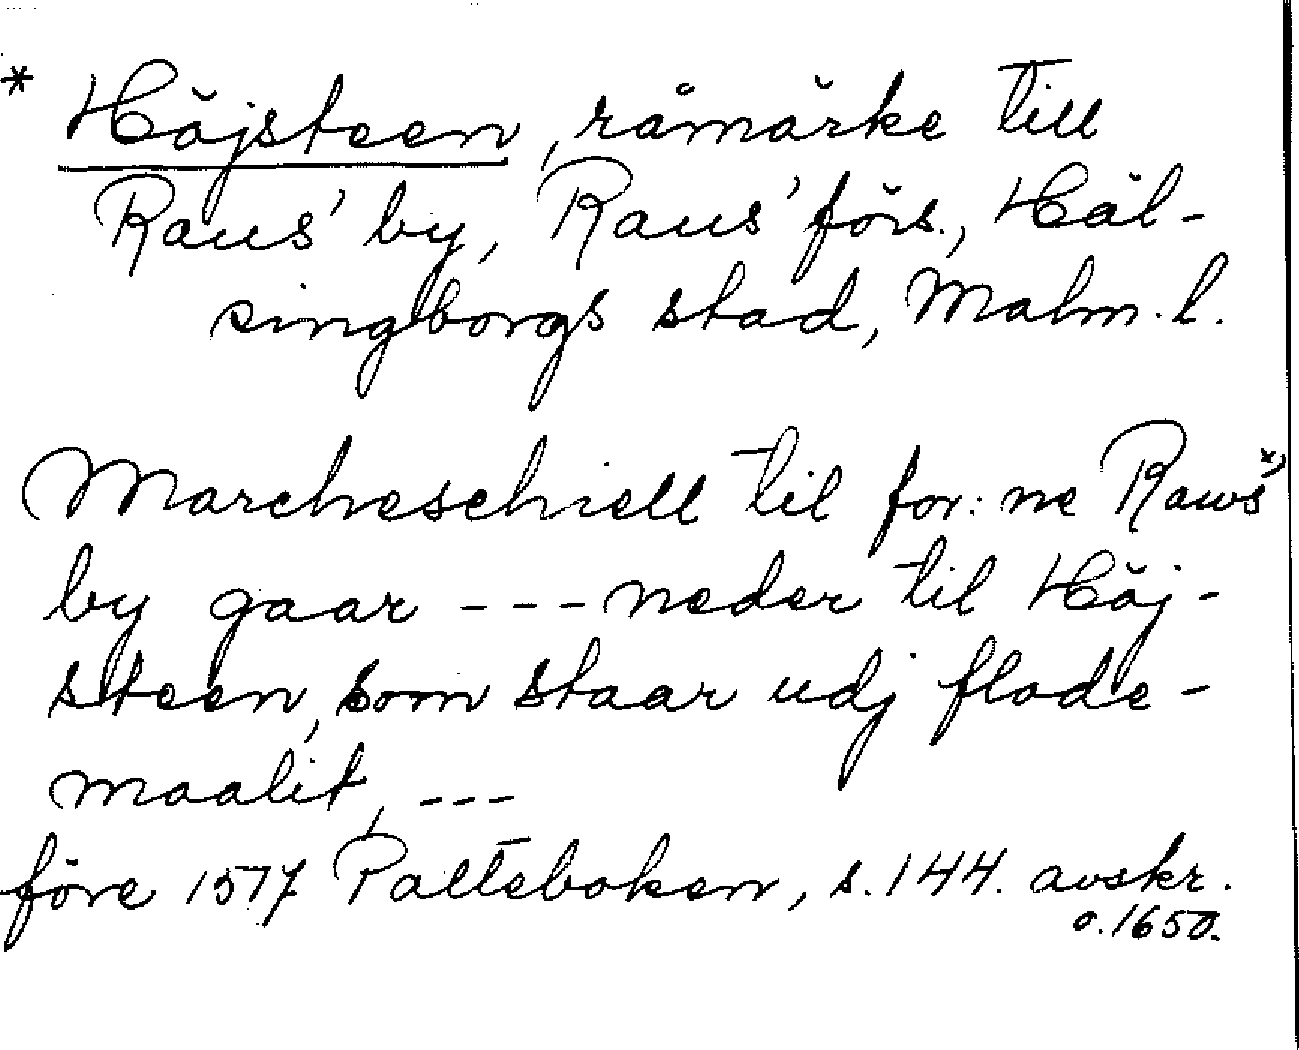 * Höjsteen, råmärke till
Raus' by, Raus' förs., Häl-
singborgs stad, Malm. l.
Marcheschiell til for: ne Raws*)
by gaar --- neder til Höj-
steen, som staar udj flode-
maalit, ---
före 1577 Palteboken, s. 144. avskr.
o. 1650.